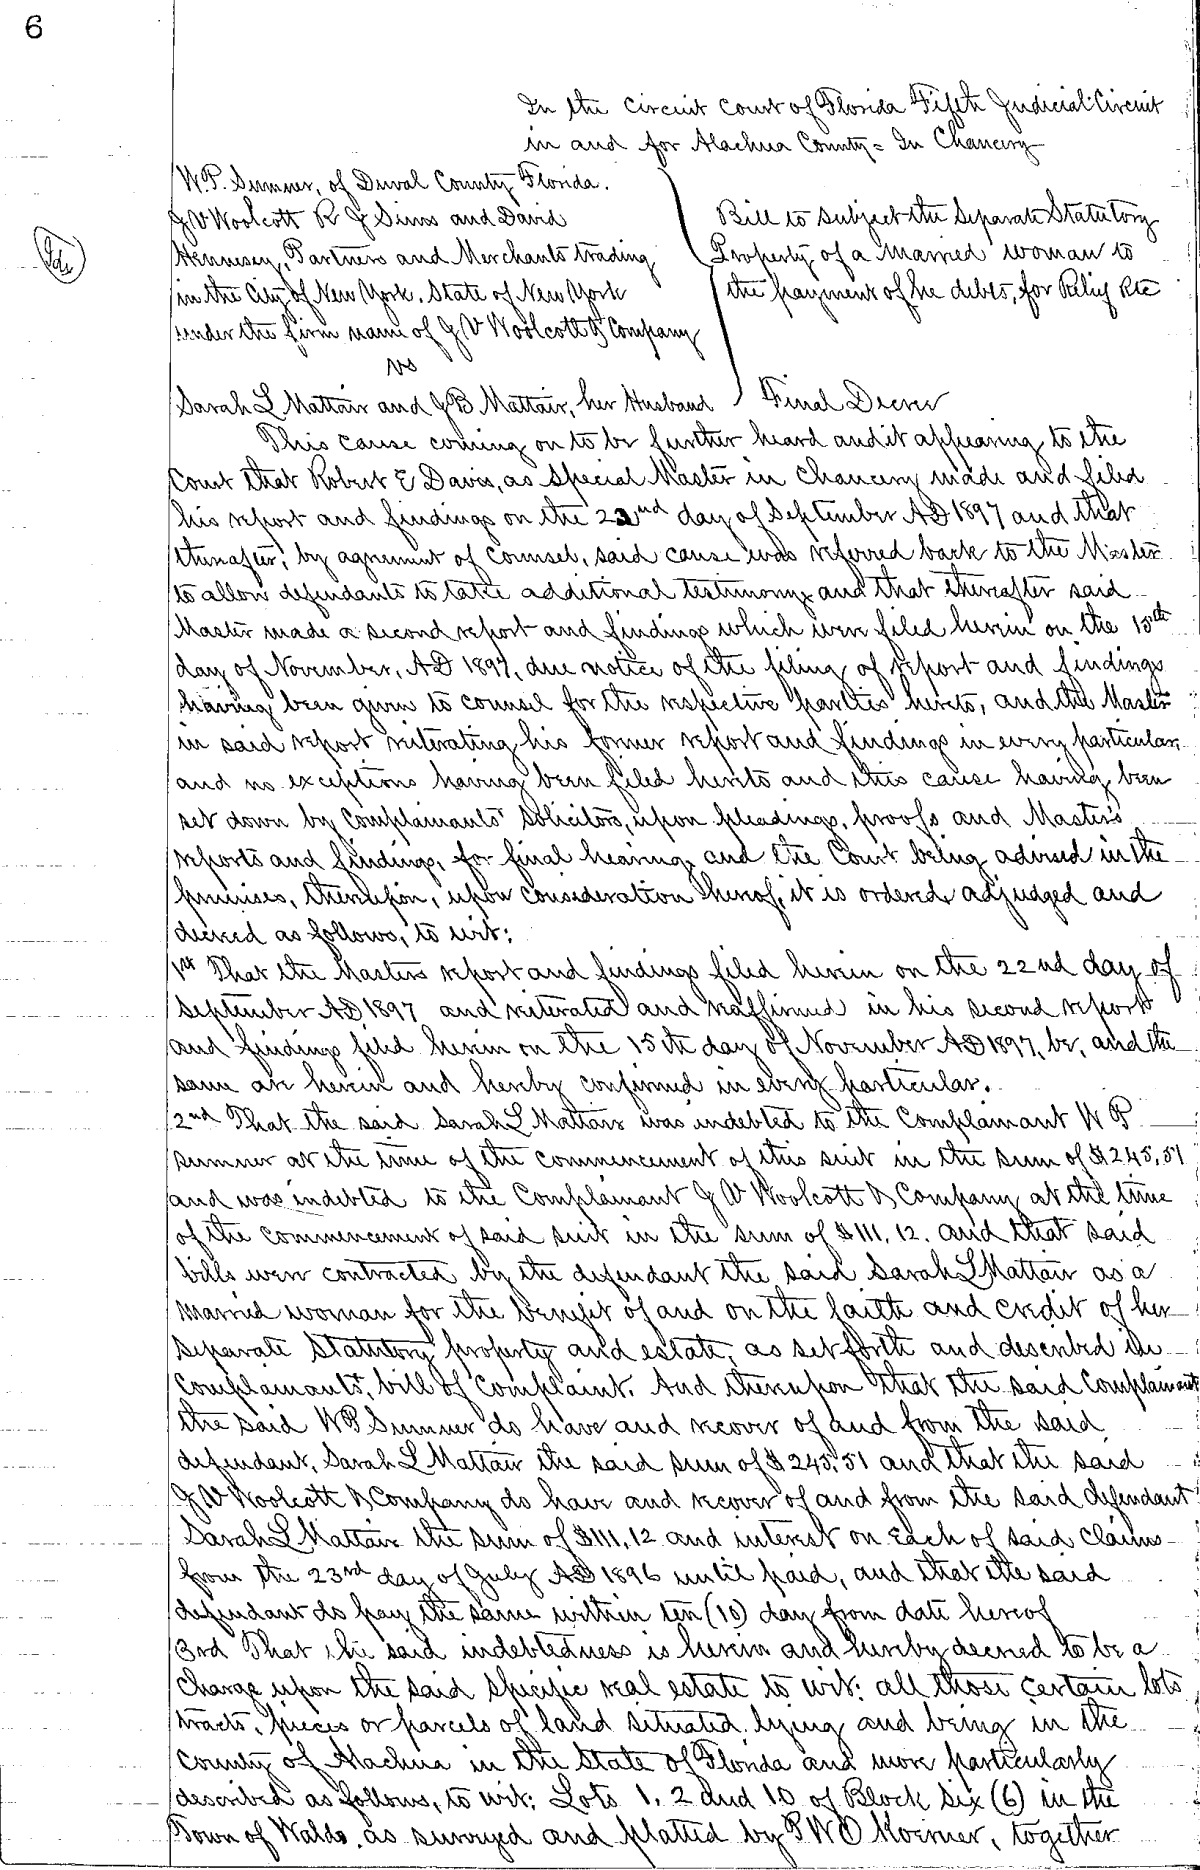 6
In the Circuit Court of Florida Fifth Judicial Circuit
in and for Alachua County = In Chancery
W.P. Sumner, of Duval County Florida.
J V Woolcott R J Sims and David
Hennesey, Partners and Merchants trading
in the City of New York, State of New York
under the firm name of J V Woolcott & Company
vs
Sarah L Mattair and J B Mattair, her Husband
Bill to subject the Separate Statutory
Property of a Married woman to
the payment of he debts, for Relief Etc
Final Decree
This cause coming on to be further heard and it appearing to the
Court that Robert E Davis, as Special Master in Chancery made and filed
his report and findings on the 22nd day of September AD 1897 and that
thereafter, by agreement of counsel, said cause was referred back to the Master
to allow defendants to take additional testimony and that thereafter said
Master made a second report and findings which were filed herein on the 15th
day of November, AD 1897, due notice of the filing of report and findings
having been given to counsel for the respective parties hereto, and the Master
in said report reiterating his former report and findings in every particular
and no exceptions having been filed hereto and this cause having been
set down by Complainants' Solicitors, upon pleadings, proofs and Master's
reports and findings, for final hearing, and the Court being advised in the
premises, thereupon, upon consideration hereof, it is ordered, adjudged and
decreed as follows, to wit:
1st That the Masters report and findings filed herein on the 22nd day of
September AD 1897 and reiterated and reaffirmed in his second report
and findings filed herein on the 15th day of November AD 1897, be, and the
same are herein and hereby confirmed in every particular.
2nd That the said Sarah L Mattair was indebted to the Complainant W P
Sumner at the time of the commencement of this suit in the sum of $245.51
and was indebted to the Complainant J V Woolcott & Company at the time
of the commencement of said suit in the sum of $111.12. and that said
bills were contracted by the defendant the said Sarah L Mattair as a
married woman for the benefit of and on the faith and credit of her
separate Statutory property and estate, as set forth and described in
Complainants', bill of Complaint. And thereupon that the said Complainant
the said W P Sumner do have and recover of and from the said
defendant, Sarah L Mattair the said sum of $245.51 and that the said
J V Woolcott & Company do have and recover of and from the said defendant
Sarah L Mattair the sum of $111.12 and interest on Each of said claims
from the 23rd day of July AD 1896 until paid, and that the said
defendant do pay the same within ten (10) day from date hereof
3rd That the said indebtedness is herein and hereby decreed to be a
Charge upon the said specific real estate to wit: all those certain lots
tracts, pieces or parcels of land situated, lying and being in the
County of Alachua in the State of Florida and more particularly
described as follows, to wit: Lots 1, 2 and 10 of Block Six (6) in the
Town of Waldo, as surveyed and platted by P W O Koerner, together